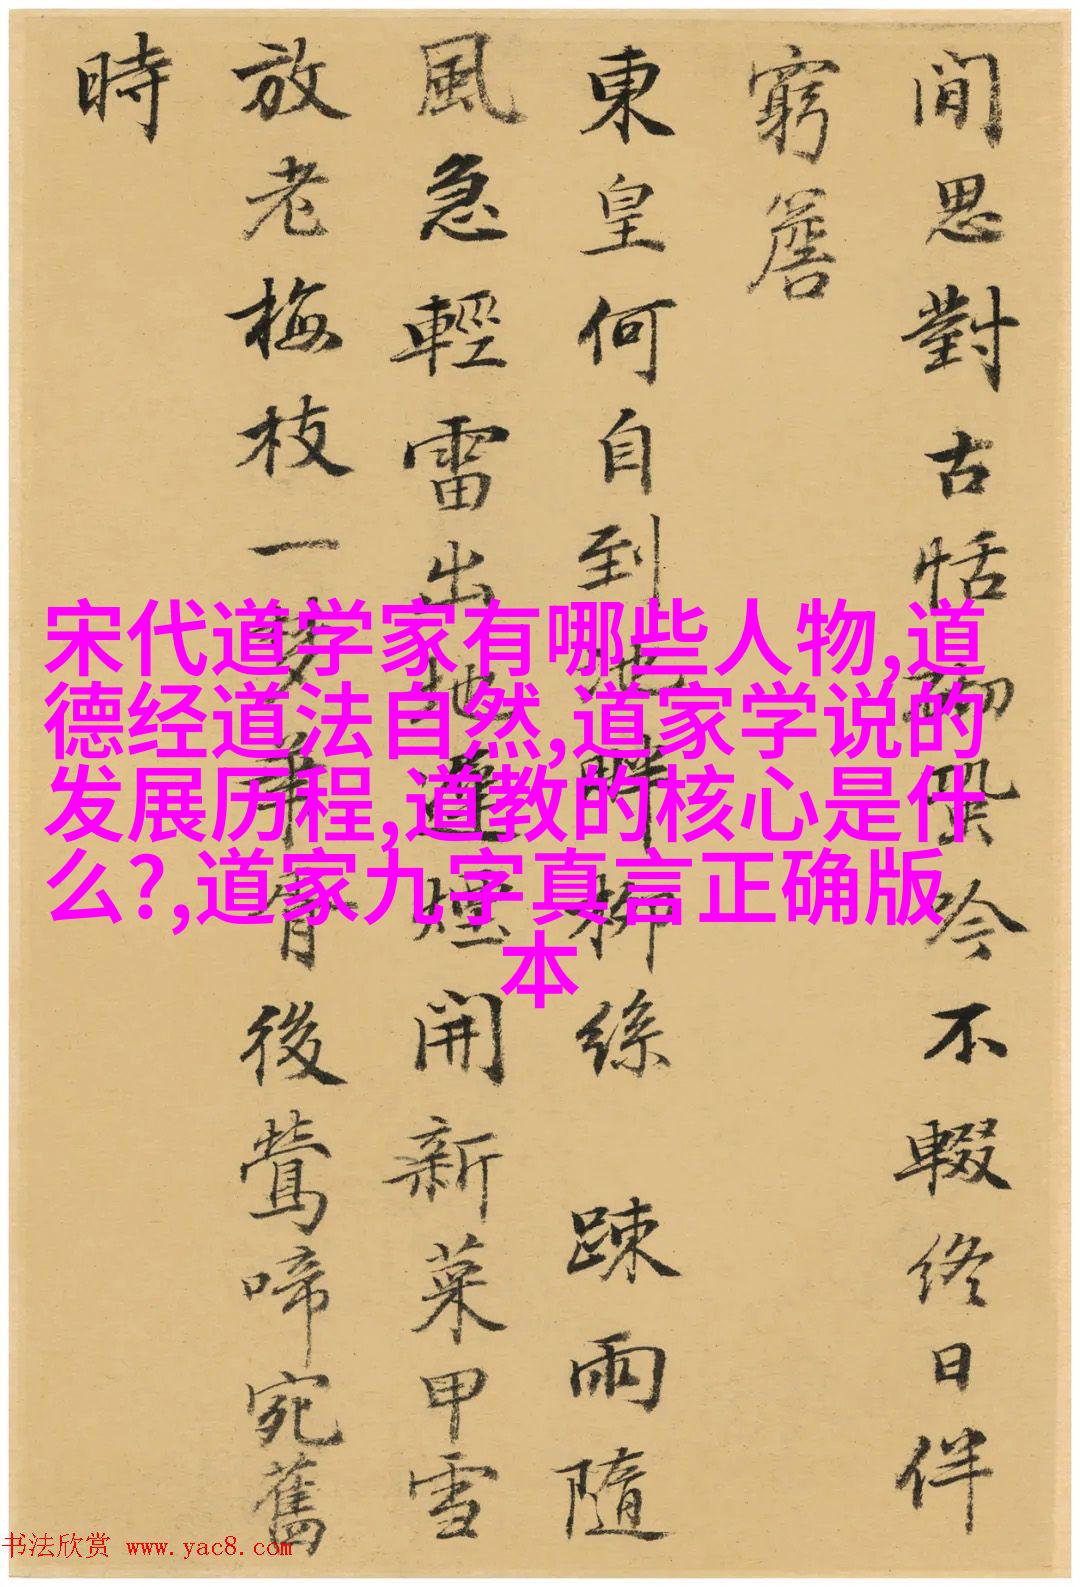 間思對古恬吟不輟終日伴
窮簷
東皇何自到池畔柳絲 疎雨隨
風急輕雷出地遲煙開新菜甲雪
放老梅枝一夢華胥後鶯啼宛舊
時
宋代道学家有哪些人物,道
德经道法自然,道家学说的
发展历程,道教的核心是什
么?,道家九字真言正确版
本
书法欣赏 www.yac8.com